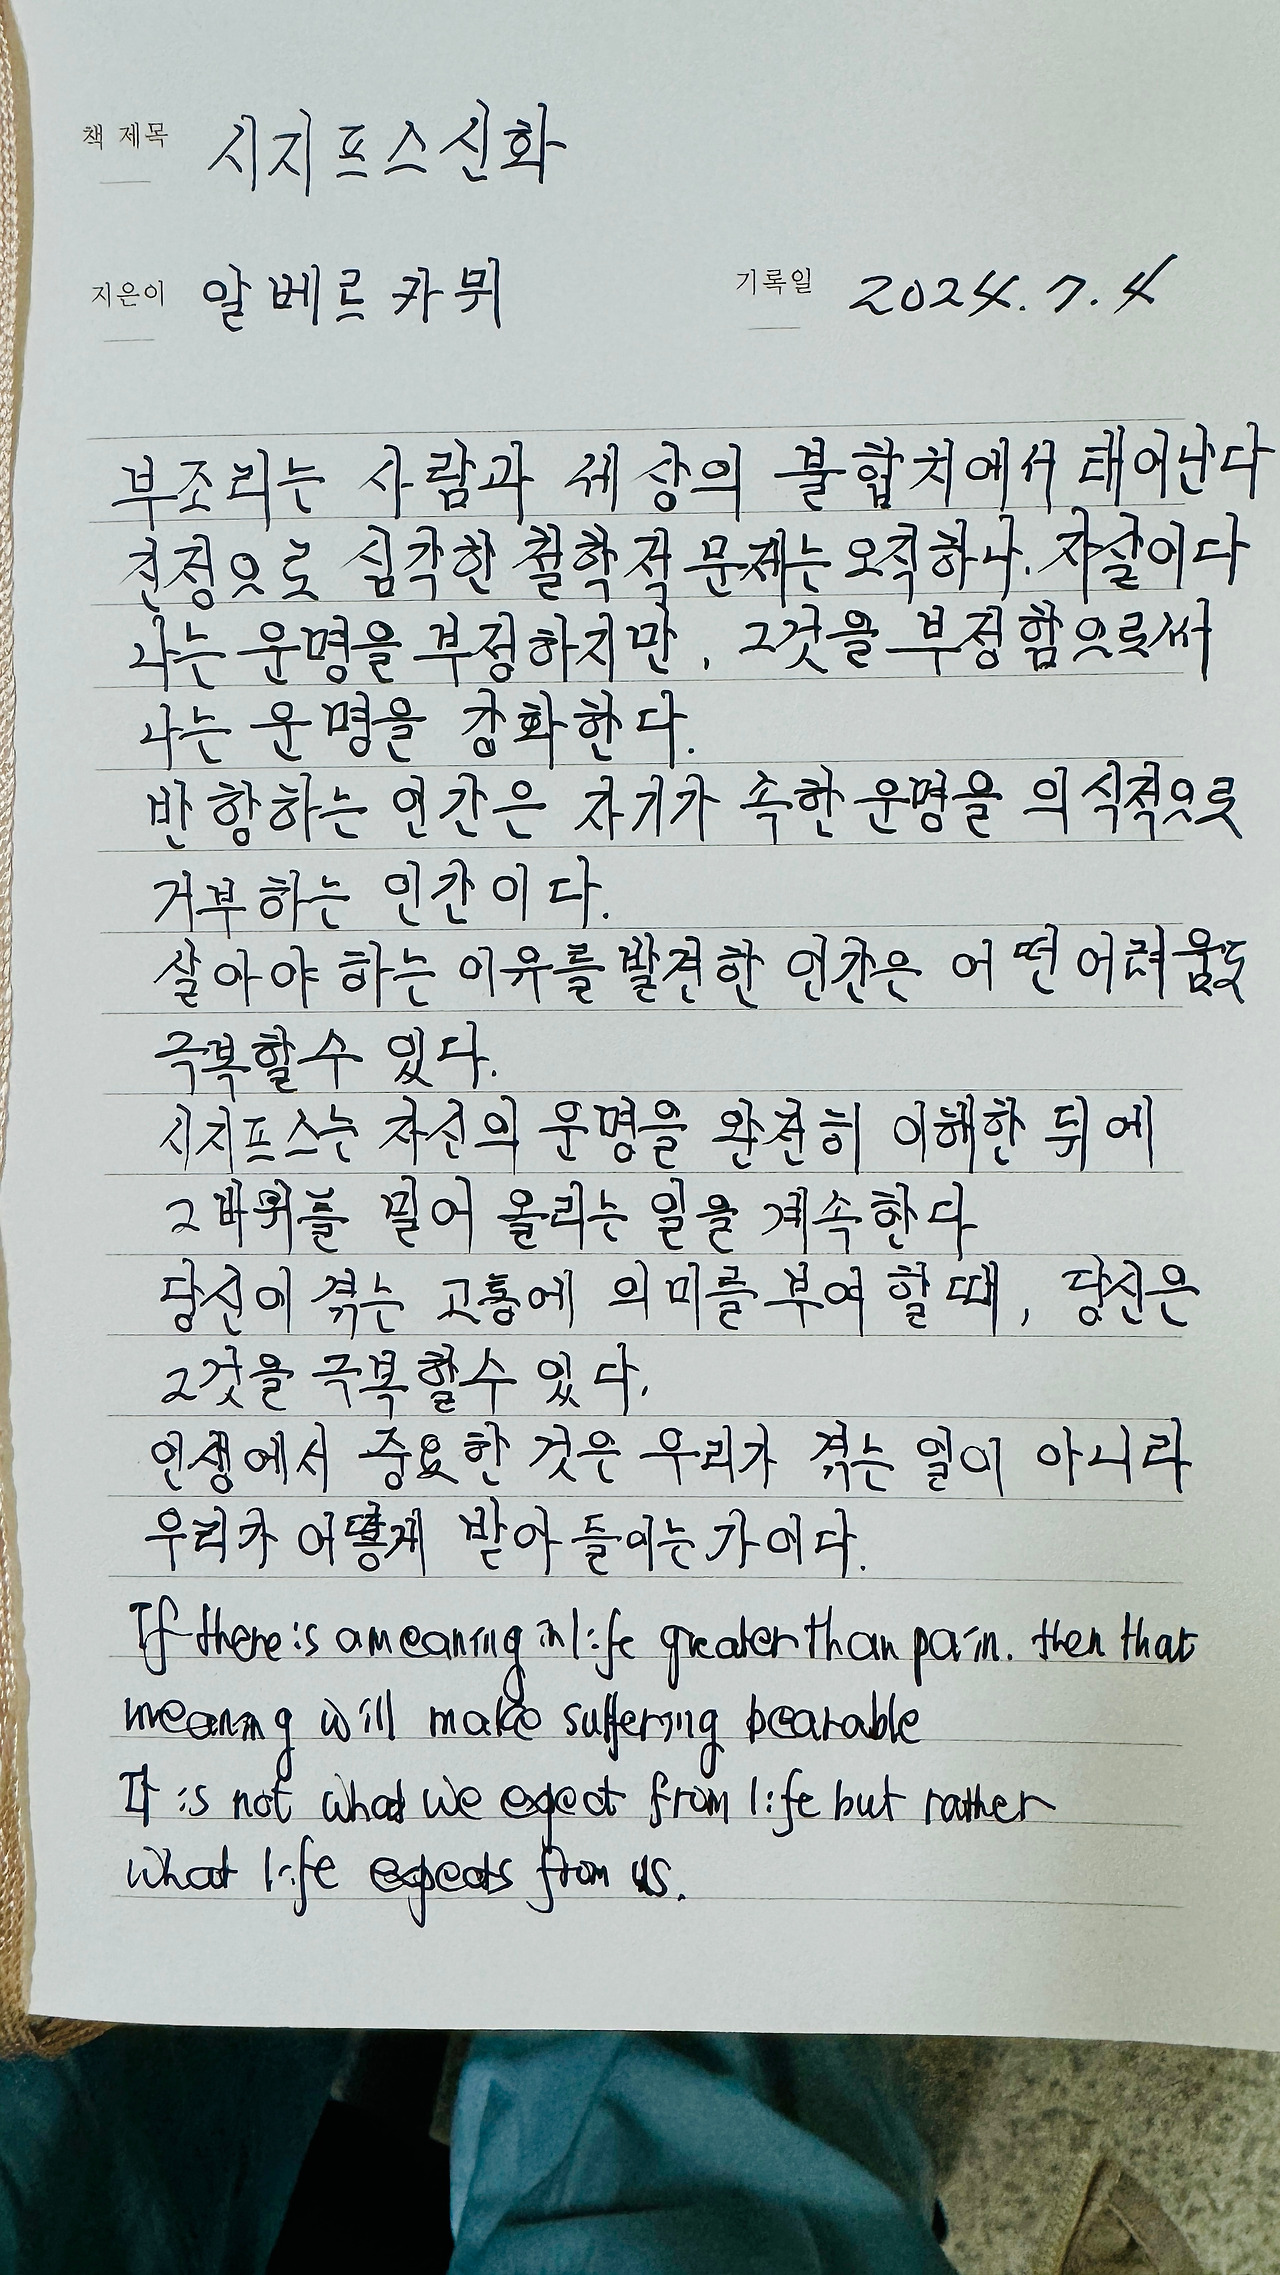 책 제목 시지프스신화
지은이 알베르 카뮈 기록일 2024.7.4
부조리는 사람과 세상의 불합치에서 태어난다
진정으로 심각한 철학적 문제는 오직하나. 자살이다
나는 운명을 부정하지만, 그것을 부정함으로써
나는 운명을 강화한다.
반항하는 인간은 자기가 속한 운명을 의식적으로
거부하는 인간이다.
살아야 하는 이유를 발견한 인간은 어떤 어려움도
극복할수 있다.
시지프스는 자신의 운명을 완전히 이해한 뒤에
그바위를 밀어 올리는 일을 계속한다
당신이 겪는 고통에 의미를 부여 할 때, 당신은
그것을 극복할수 있다.
인생에서 중요한 것은 우리가 겪는 일이 아니라
우리가 어떻게 받아 들이는가이다.
If there is a meaning in life greater than pain. then that
meaning will make suffering bearable
It is not what we expect from life but rather
what life expects from us.